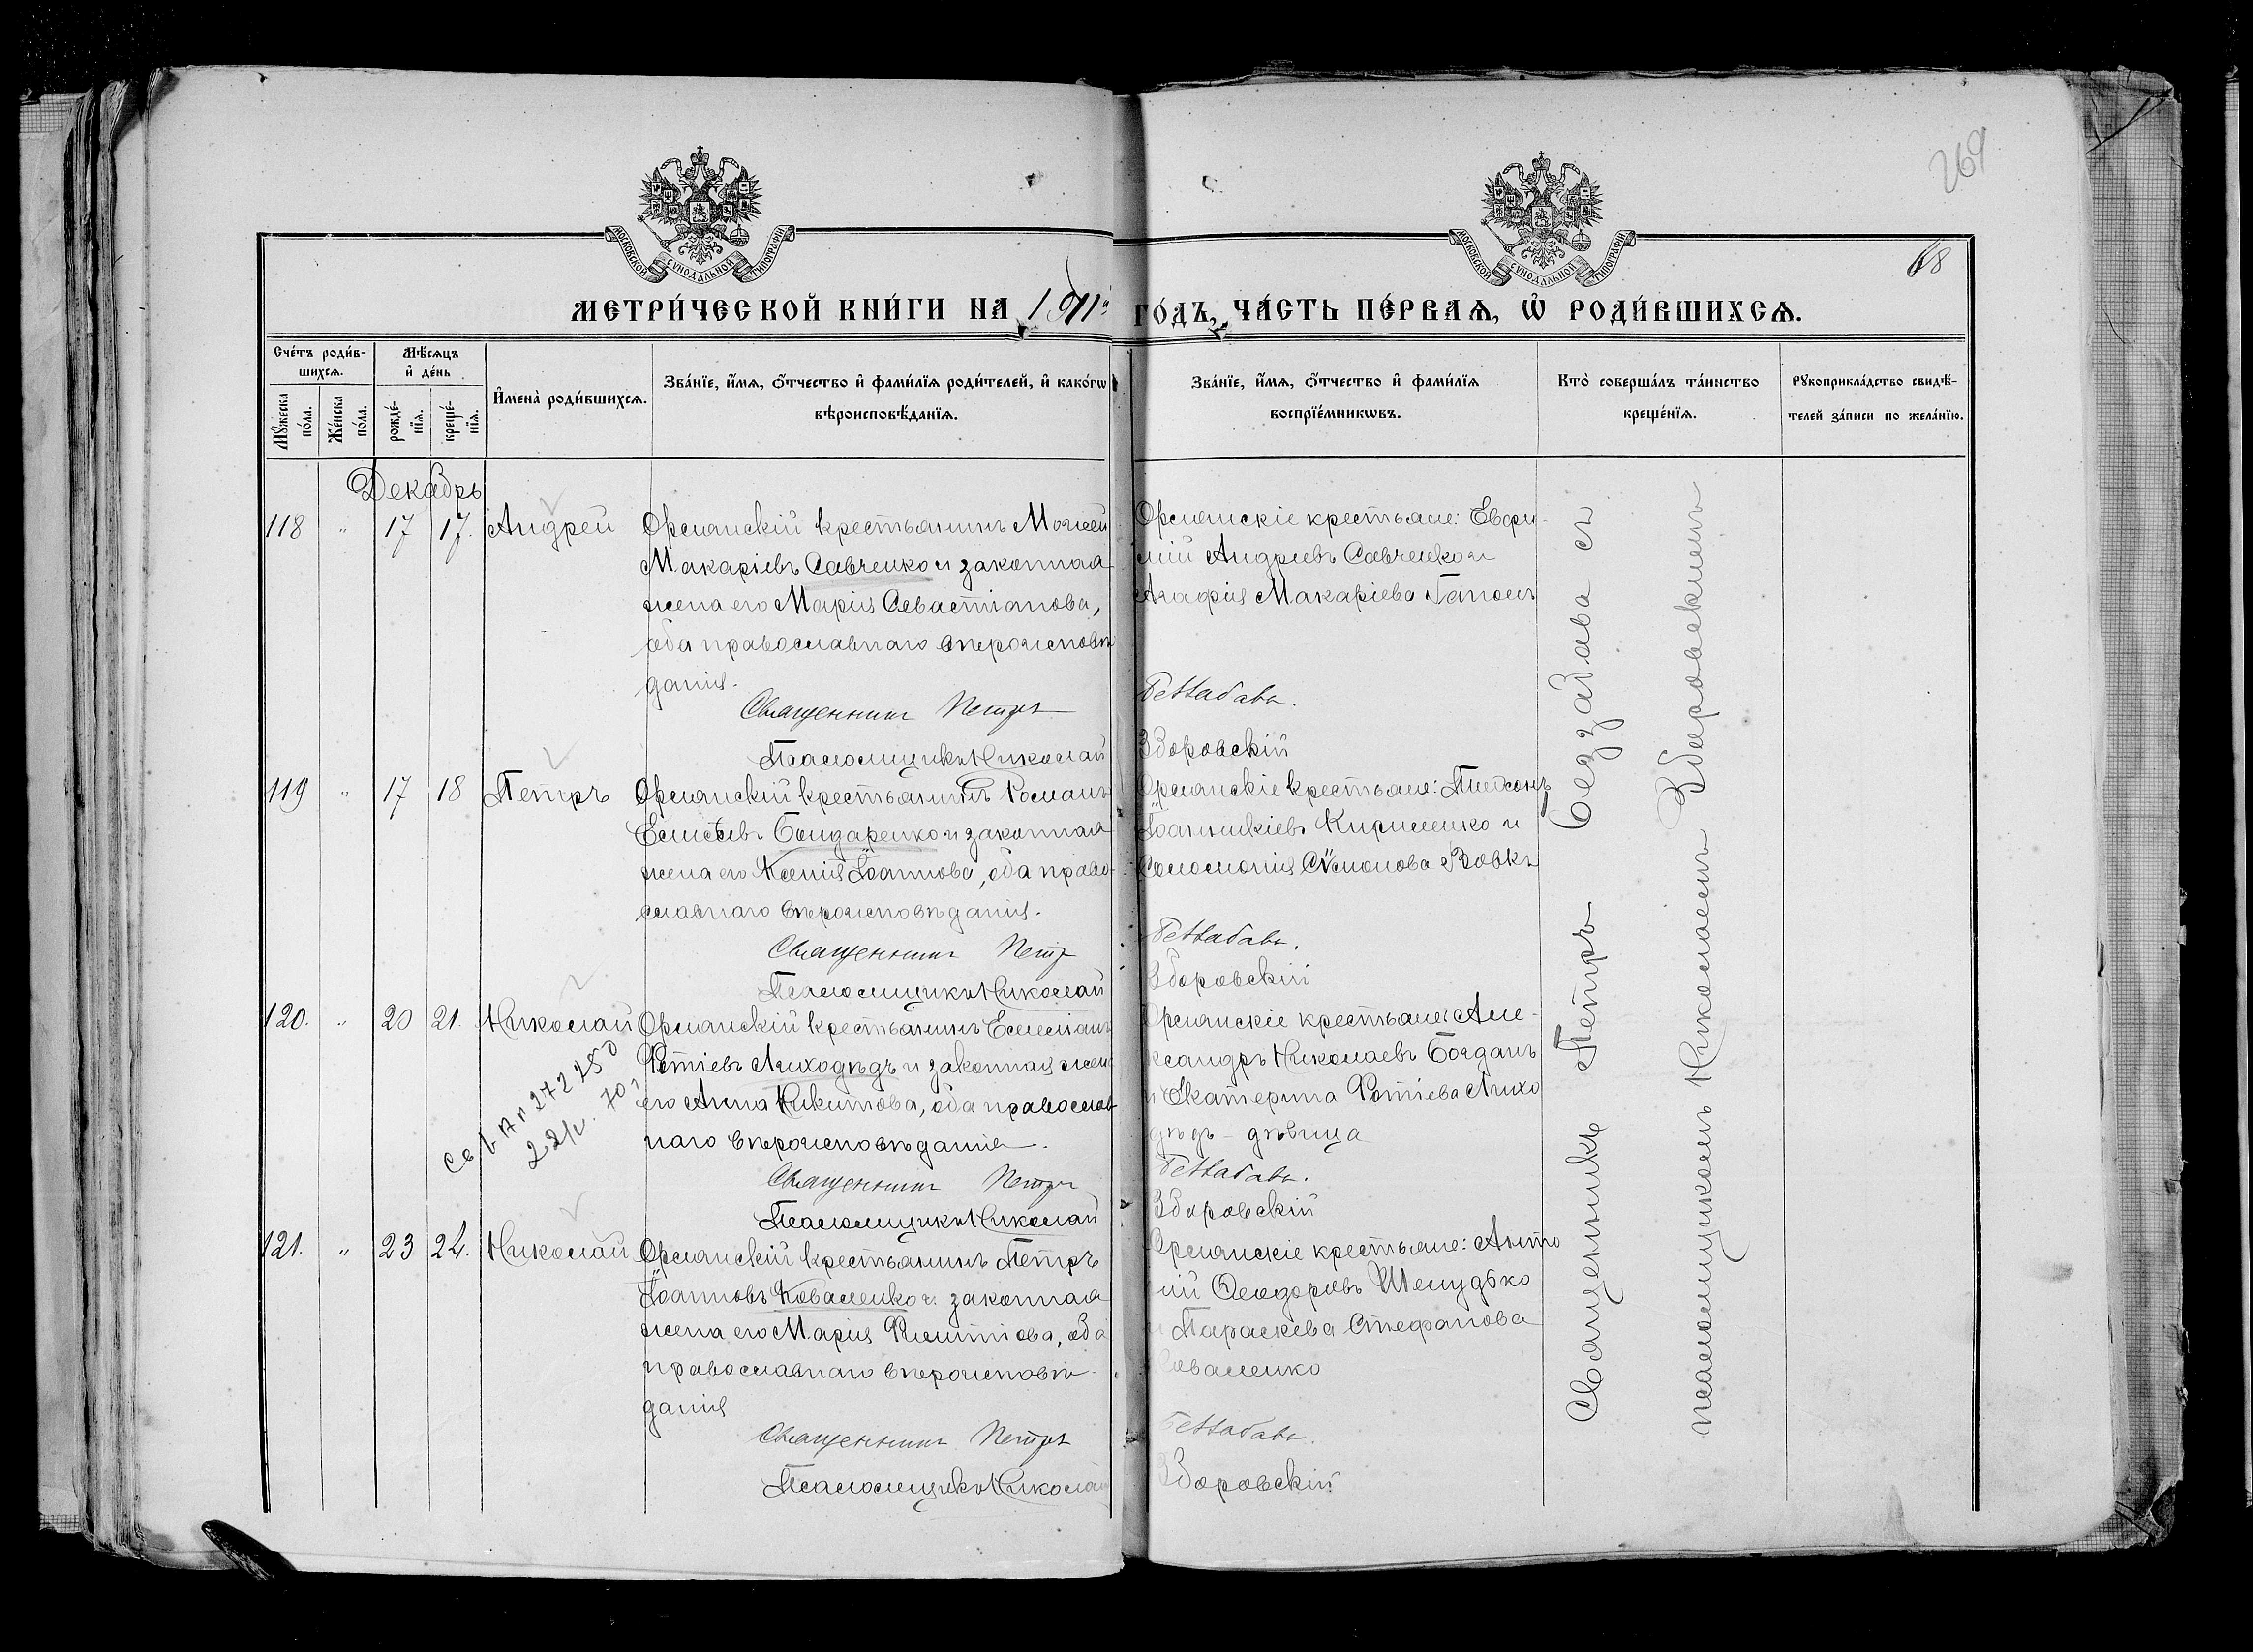 269
68
МОСКОВСКОЙ СѴНОДАЛЬНОЙ ТИПОГРАФІИ
МОСКОВСКОЙ СѴНОДАЛЬНОЙ ТИПОГРАФІИ
МЕТРИ́ЧЕСКОЙ КНИ́ГИ НА 1911й ГО́ДЪ, ЧА́СТЬ ПЕ́РВАѦ, Ѡ҆ РОДИ́ВШИХСѦ.
Сче́тъ роди́в-
шихсѧ.
Мꙋ́жеска по́ла.
Же́нска по́ла.
Мѣ́сѧцъ
и҆ де́нь
рожде́-
нїѧ.
креще́-
нїѧ.
И҆мена̀ роди́вшихсѧ.
Зва́нїе, и҆́мѧ, ѻ҆́тчество и҆ фами́лїѧ роди́телей, и҆ како́гѡ
вѣроисповѣ́данїѧ.
Зва́нїе, и҆́мѧ, ѻ҆́тчество и҆ фами́лїѧ
воспрїе́мникѡвъ.
Кто̀ соверша́лъ та́инство
креще́нїѧ.
Рꙋкоприкла́дство свидѣ́-
телей за́писи по жела́нїю.
Декабрь
118 " 17 17. Андрей
Орлянскій крестьянинъ Моисей
Макаріевъ Савченко и законная
жена его Марія Севастіанова,
оба православнаго вѣроисповѣ
данія.
Священникъ Петръ
Псаломщикъ Николай
Орлянскіе крестьяне: Евфи-
мій Андреевъ Савченко и
Агафія Макаріева Гапонъ
Беззабава.
Зборовскій
119 " 17 18 Петръ
Орлянскій крестьянинъ Романъ
Елисѣевъ Бондаренко и законная
жена его Ксенія Іоаннова, оба право-
славнаго вѣроисповѣданія.
Священникъ Петръ
Псаломщикъ Николай
Орлянскіе крестьяне:
Іоанникіевъ Кириленко и
Соломонія Сѵмонова Вовкъ
Беззабава.
Зборовскій
120. " 20 21. Николай
Орлянскій крестьянинъ Емеліанъ
Фотіевъ Лиходѣдъ и законная жена
его Анна Никитова, оба православ
наго вѣроисповѣданія.
Священникъ Петръ
Псаломщикъ Николай
Орлянскіе крестьяне: Але-
ксандръ Николаевъ Богданъ
и Екатерина Фотіева Лихо
дѣдъ - дѣвица
Беззабава.
Зборовскій
121. " 23 24. Николай
Орлянскій крестьянинъ Петръ
Іоанновъ Коваленко и законная
жена его Марія Филиппова, оба
православнаго вѣроисповѣ-
данія
Священникъ Петръ
Псаломщикъ Николай
Орлянскіе крестьяне: Анто
ній Ѳеодоровъ Шелудько
и Параскева Стефанова
Коваленко
Беззабава.
Зборовскій
Священникъ Петръ Беззабава съ
псаломщикомъ Николаемъ Зборовскимъ